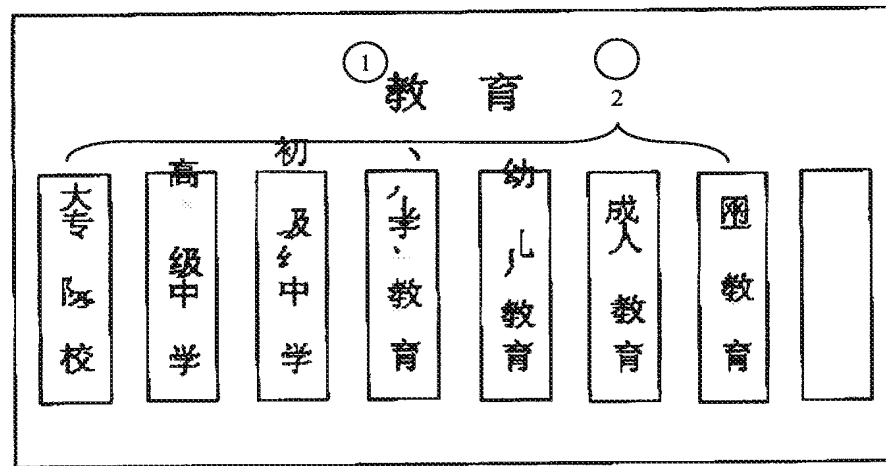 ①
教 育
2
大专院校
高级中学
初级中学
小学教育
幼儿教育
成人教育
教育